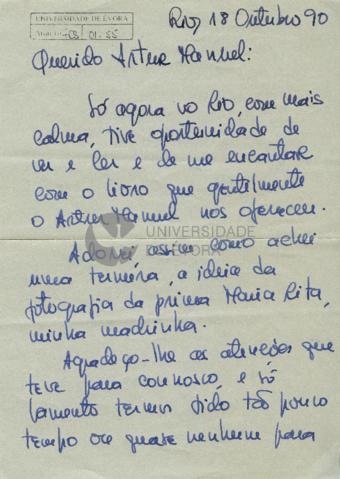 UNIVERSIDADE DE ÉVORA
Rio, 18 Outubro 90
Querido Artur Manuel:
Só agora no Rio, com mais
calma, tive oportunidade de
ver e ler e de me encantar
com o livro que gentilmente
o Artur Manuel nos ofereceu.
UNIVERSIDADE
DE ÉVORA
Adorei, assim como achei
uma ternura, a ideia da
fotografia da prima Maria Rita,
minha madrinha.
Agradeço-lhe as atenções que
teve para connosco, e só
lamento termos tido tão pouco
tempo ou quase nenhum para